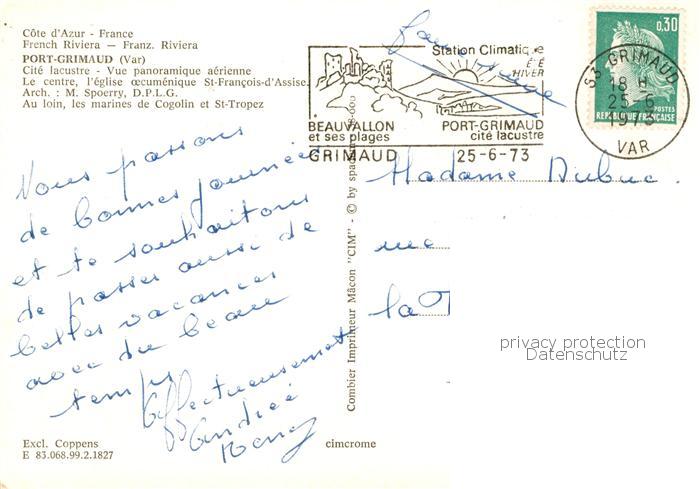 Côte d'Azur - France
French Riviera — Franz. Riviera
PORT-GRIMAUD (Var)
Cité lacustre - Vue panoramique aérienne
Le centre, l'église œcuménique St-François-d'Assise.
Arch. : M. Spoerry, D.P.L.G.
Au loin, les marines de Cogolin et St-Tropez
Nous passons
de bonnes journées
et te souhaitons
de passer aussi de
belles vacances
avec du beau
temps
Affectueusement
Andrée
Excl. Coppens
E 83.068.99.2.1827
cimcrome
Combier Imprimeur Mâcon "CIM" - © by
Station Climatique
ÉTÉ
HIVER
BEAUVALLON
et ses plages
PORT-GRIMAUD
cité lacustre
GRIMAUD 25-6-73
0,30
POSTES
REPUBLIQUE FRANÇAISE
83 GRIMAUD
18 H
25-6
1973
VAR
Madame Dubuc.
rue
la
privacy protection
Datenschutz